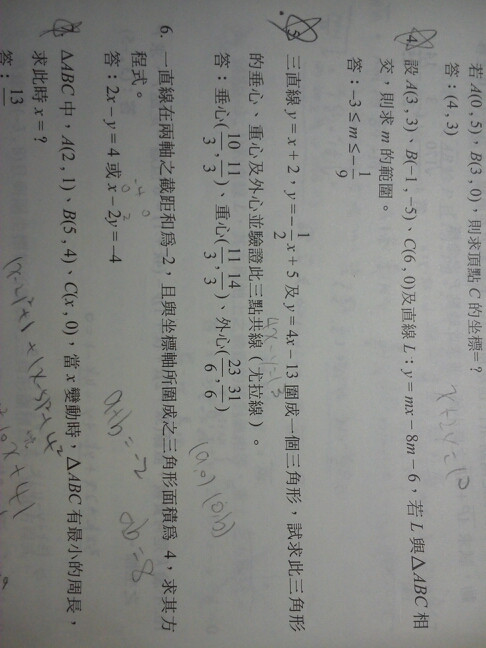 若 A(0 , 5)，B(3 , 0)，則求頂點 C 的坐標=？
答：(4 , 3)
x+2y=10
4. 設 A(3 , 3)、B(-1 , -5)、C(6 , 0)及直線 L：y = mx - 8m - 6，若 L 與△ABC 相
交，則求 m 的範圍。
答：-3 ≤ m ≤ -1/9
5. 三直線 y = x + 2，y = -1/2 x + 5 及 y = 4x - 13 圍成一個三角形，試求此三角形
的垂心、重心及外心並驗證此三點共線（尤拉線）。
答：垂心(10/3 , 11/3)、重心(11/3 , 14/3)、外心(23/6 , 31/6)
(a,0) (0,b)
6. 一直線在兩軸之截距和為-2，且與坐標軸所圍成之三角形面積為 4，求其方
程式。
答：2x - y = 4 或 x - 2y = -4
a+b = -2
ab = 8
7. △ABC 中，A(2 , 1)、B(5 , 4)、C(x , 0)，當 x 變動時，△ABC 有最小的周長，
求此時 x = ?
答：13